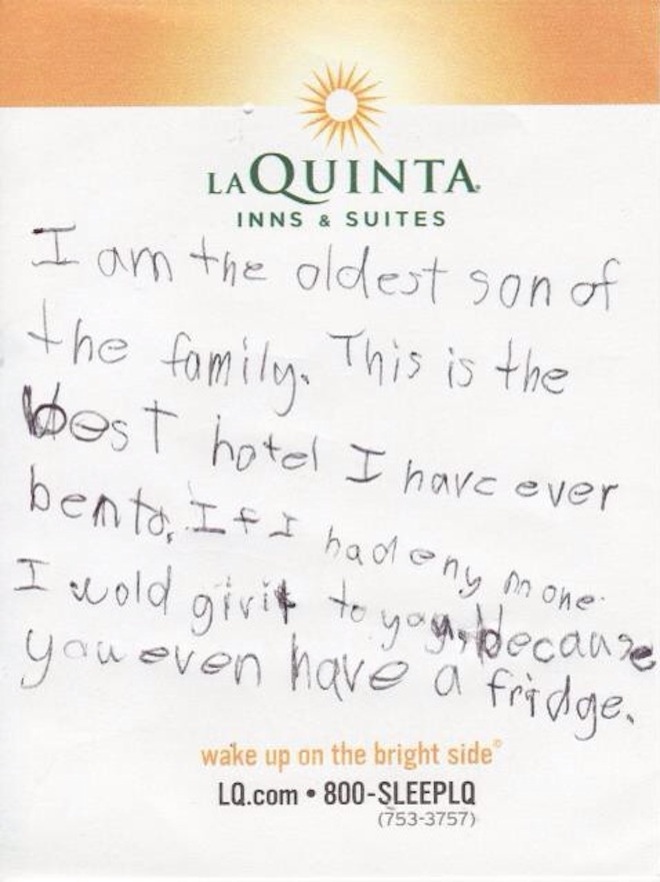 LA QUINTA
INNS & SUITES
I am the oldest son of
the family. This is the
best hotel I have ever
bento. If I had eny mone
I wold givit to you, because
you even have a fridge.
wake up on the bright side®
LQ.com • 800-SLEEPLQ
(753-3757)